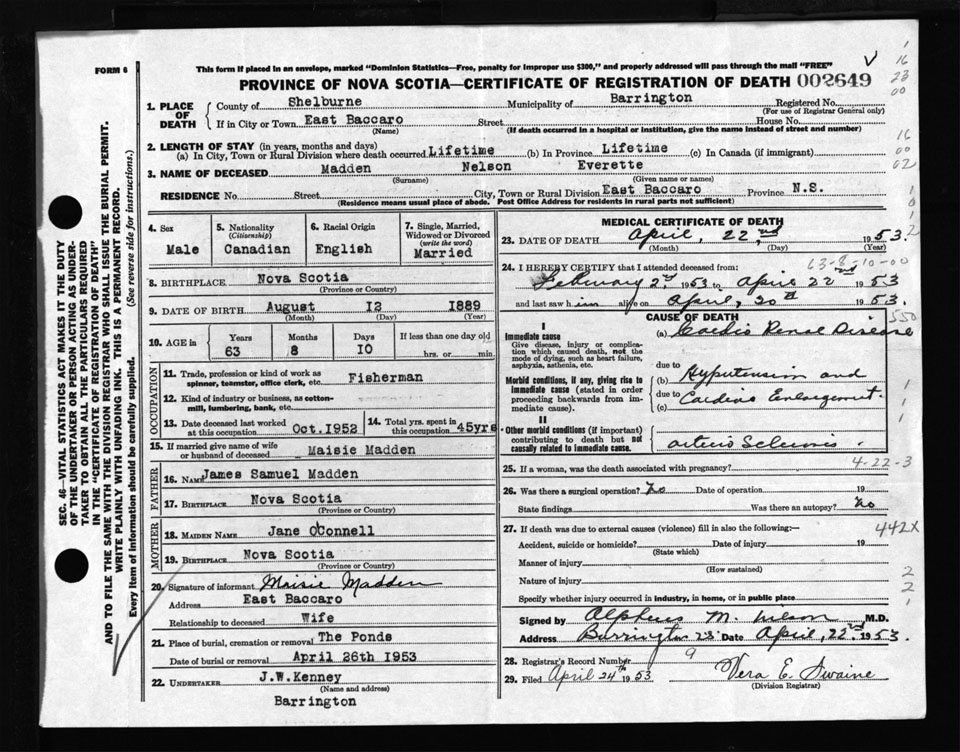 FORM 6
This form if placed in an envelope, marked "Dominion Statistics—Free, penalty for improper use $300," and properly addressed will pass through the mail "FREE"
PROVINCE OF NOVA SCOTIA—CERTIFICATE OF REGISTRATION OF DEATH 002649
SEC. 46—VITAL STATISTICS ACT MAKES IT THE DUTY
OF THE UNDERTAKER OR PERSON ACTING AS UNDER-
TAKER TO OBTAIN ALL THE PARTICULARS REQUIRED
IN THE "CERTIFICATE OF REGISTRATION OF DEATH"
AND TO FILE THE SAME WITH THE DIVISION REGISTRAR WHO SHALL ISSUE THE BURIAL PERMIT.
WRITE PLAINLY WITH UNFADING INK. THIS IS A PERMANENT RECORD.
Every item of Information should be carefully supplied. (See reverse side for instructions.)
1. PLACE OF DEATH
County of Shelburne Municipality of Barrington Registered No.
(For use of Registrar General only)
If in City or Town East Baccaro Street House No.
(Name) (If death occurred in a hospital or institution, give the name instead of street and number)
2. LENGTH OF STAY (in years, months and days)
(a) In City, Town or Rural Division where death occurred Lifetime (b) In Province Lifetime (c) In Canada (if immigrant)
3. NAME OF DECEASED Madden Nelson Everette
(Surname) (Given name or names)
RESIDENCE No. Street City, Town or Rural Division East Baccaro Province N.S.
(Residence means usual place of abode. Post Office Address for residents in rural parts not sufficient)
4. Sex
Male
5. Nationality
(Citizenship)
Canadian
6. Racial Origin
English
7. Single, Married,
Widowed or Divorced
(write the word)
Married
8. BIRTHPLACE Nova Scotia
(Province or Country)
9. DATE OF BIRTH August 12 1889
(Month) (Day) (Year)
10. AGE in
Years Months Days If less than one day old
63 8 10 hrs. or min.
OCCUPATION
11. Trade, profession or kind of work as
spinner, teamster, office clerk, etc. Fisherman
12. Kind of industry or business, as cotton-
mill, lumbering, bank, etc.
13. Date deceased last worked
at this occupation Oct. 1952
14. Total yrs. spent in
this occupation 45yrs.
15. If married give name of wife
or husband of deceased Maisie Madden
FATHER
16. NAME James Samuel Madden
17. BIRTHPLACE Nova Scotia
(Province or Country)
MOTHER
18. MAIDEN NAME Jane O'Connell
19. BIRTHPLACE Nova Scotia
(Province or Country)
20. Signature of informant Maisie Madden
Address East Baccaro
Relationship to deceased Wife
21. Place of burial, cremation or removal The Ponds
Date of burial or removal April 26th 1953
22. UNDERTAKER J.W.Kenney
(Name and address)
Barrington
MEDICAL CERTIFICATE OF DEATH
23. DATE OF DEATH April, 22nd, 1953.
(Month) (Day)
63-8-10-00
24. I HEREBY CERTIFY that I attended deceased from:
February 2nd 1953 to April 22nd 1953
and last saw him alive on April, 20th 1953.
CAUSE OF DEATH
I
Immediate cause
Give disease, injury or complica-
tion which caused death, not the
mode of dying, such as heart failure,
asphyxia, asthenia, etc.
(a) Cardio Renal Disease
due to
Morbid conditions, if any, giving rise to
immediate cause (stated in order
proceeding backwards from im-
mediate cause).
(b) Hypertension and
due to Cardiac Enlargement.
(c)
II
Other morbid conditions (if important)
contributing to death but not
causally related to immediate cause.
arterio Sclerosis.
25. If a woman, was the death associated with pregnancy? 4-22-3
26. Was there a surgical operation? No Date of operation 19
State findings Was there an autopsy? No
27. If death was due to external causes (violence) fill in also the following:— 442X
Accident, suicide or homicide? Date of injury 19
(State which)
Manner of injury
(How sustained)
Nature of injury
Specify whether injury occurred in industry, in home, or in public place
Signed by Alpheus M. Wilson M.D.
Address Barrington Date April, 22nd 1953.
28. Registrar's Record Number 9
29. Filed April 24th 1953 Vera E. Swaine
(Division Registrar)